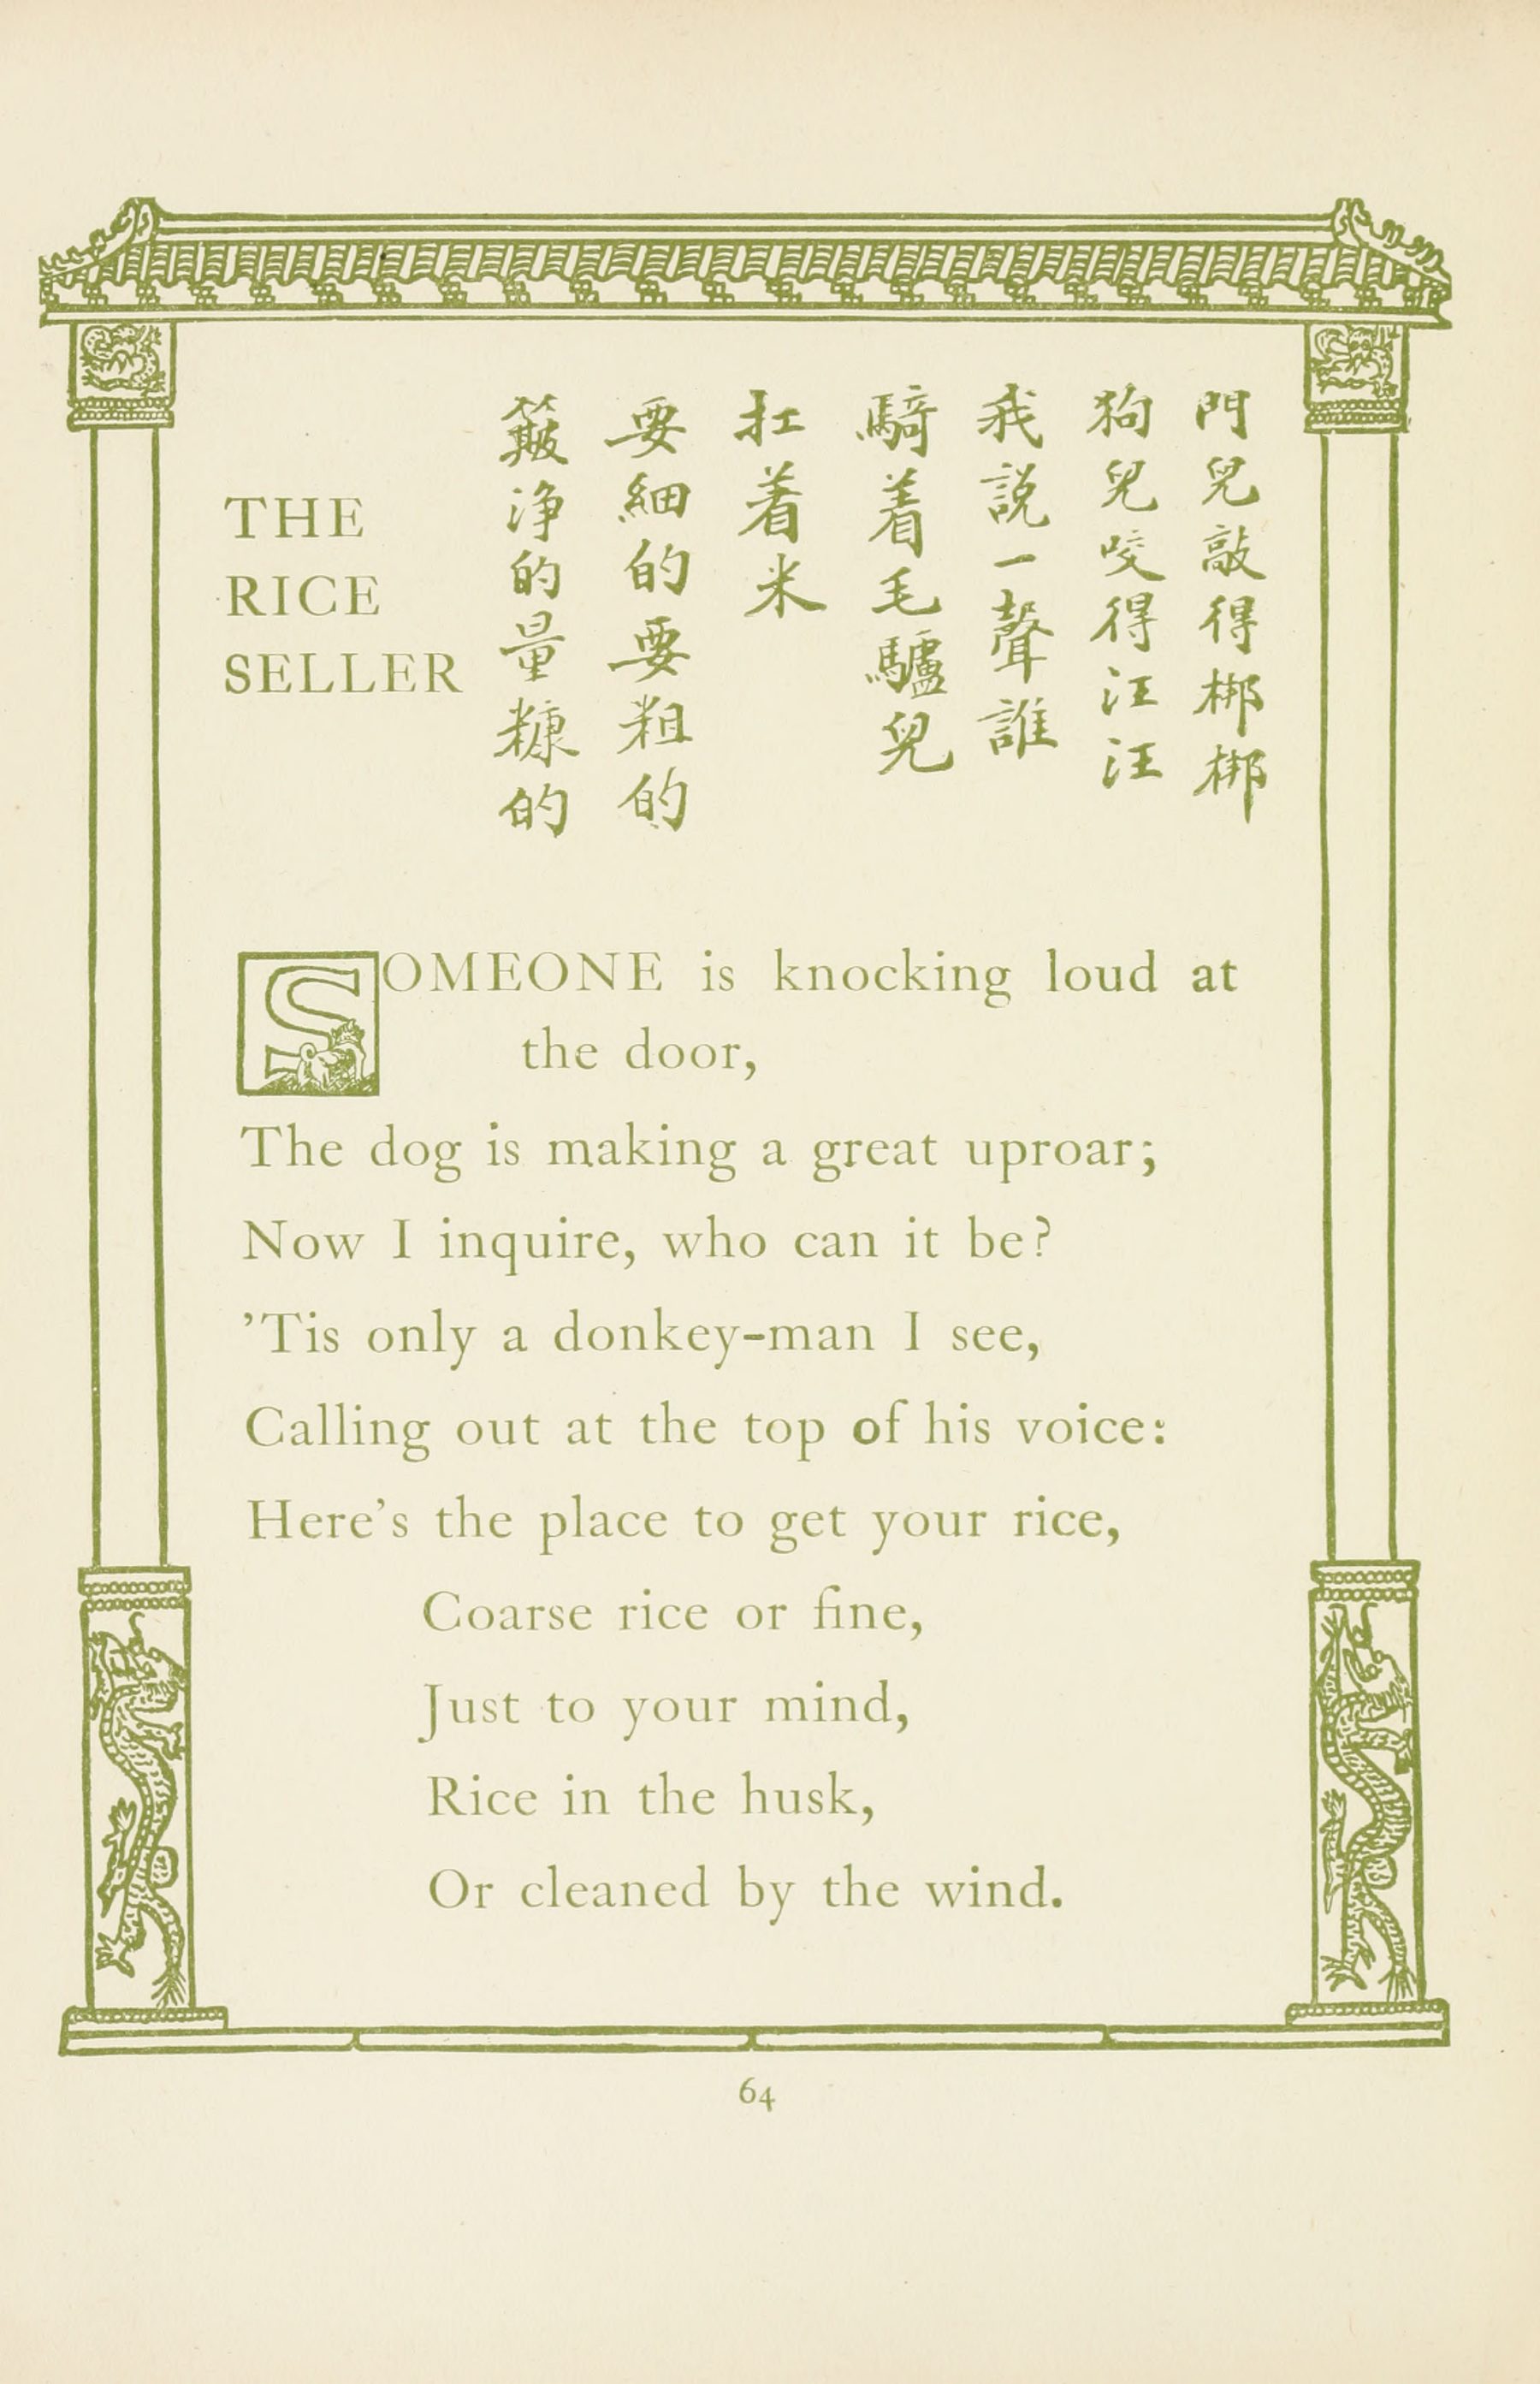 THE
RICE
SELLER
門兒敲得梆梆
狗兒咬得汪汪
我説一聲誰
騎着毛驢兒
扛着米
要細的要粗的
簸净的量糠的
SOMEONE is knocking loud at
the door,
The dog is making a great uproar;
Now I inquire, who can it be?
’Tis only a donkey-man I see,
Calling out at the top of his voice:
Here’s the place to get your rice,
Coarse rice or fine,
Just to your mind,
Rice in the husk,
Or cleaned by the wind.
64